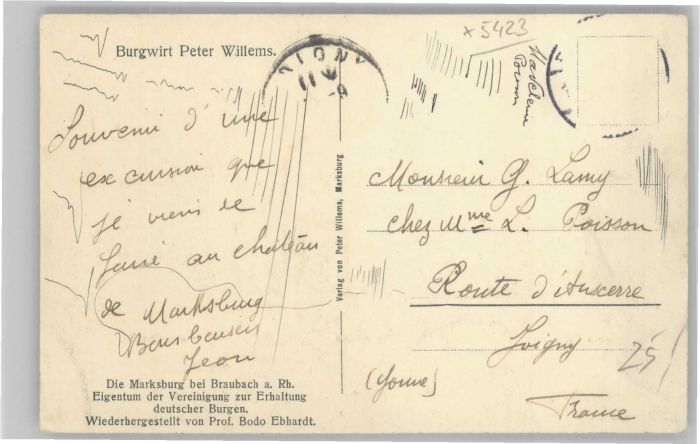 Burgwirt Peter Willems.
Souvenir d'une
excursion que
je viens de
faire au château
de Marksburg
Bons baisers
Jean
Die Marksburg bei Braubach a. Rh.
Eigentum der Vereinigung zur Erhaltung
deutscher Burgen.
Wiederhergestellt von Prof. Bodo Ebhardt.
Verlag von Peter Willems, Marksburg
x 5423
Madeleine
Poisson
Monsieur G. Lamy
chez Mme L. Poisson
Route d'Auxerre
Joigny
(Yonne)
France
25